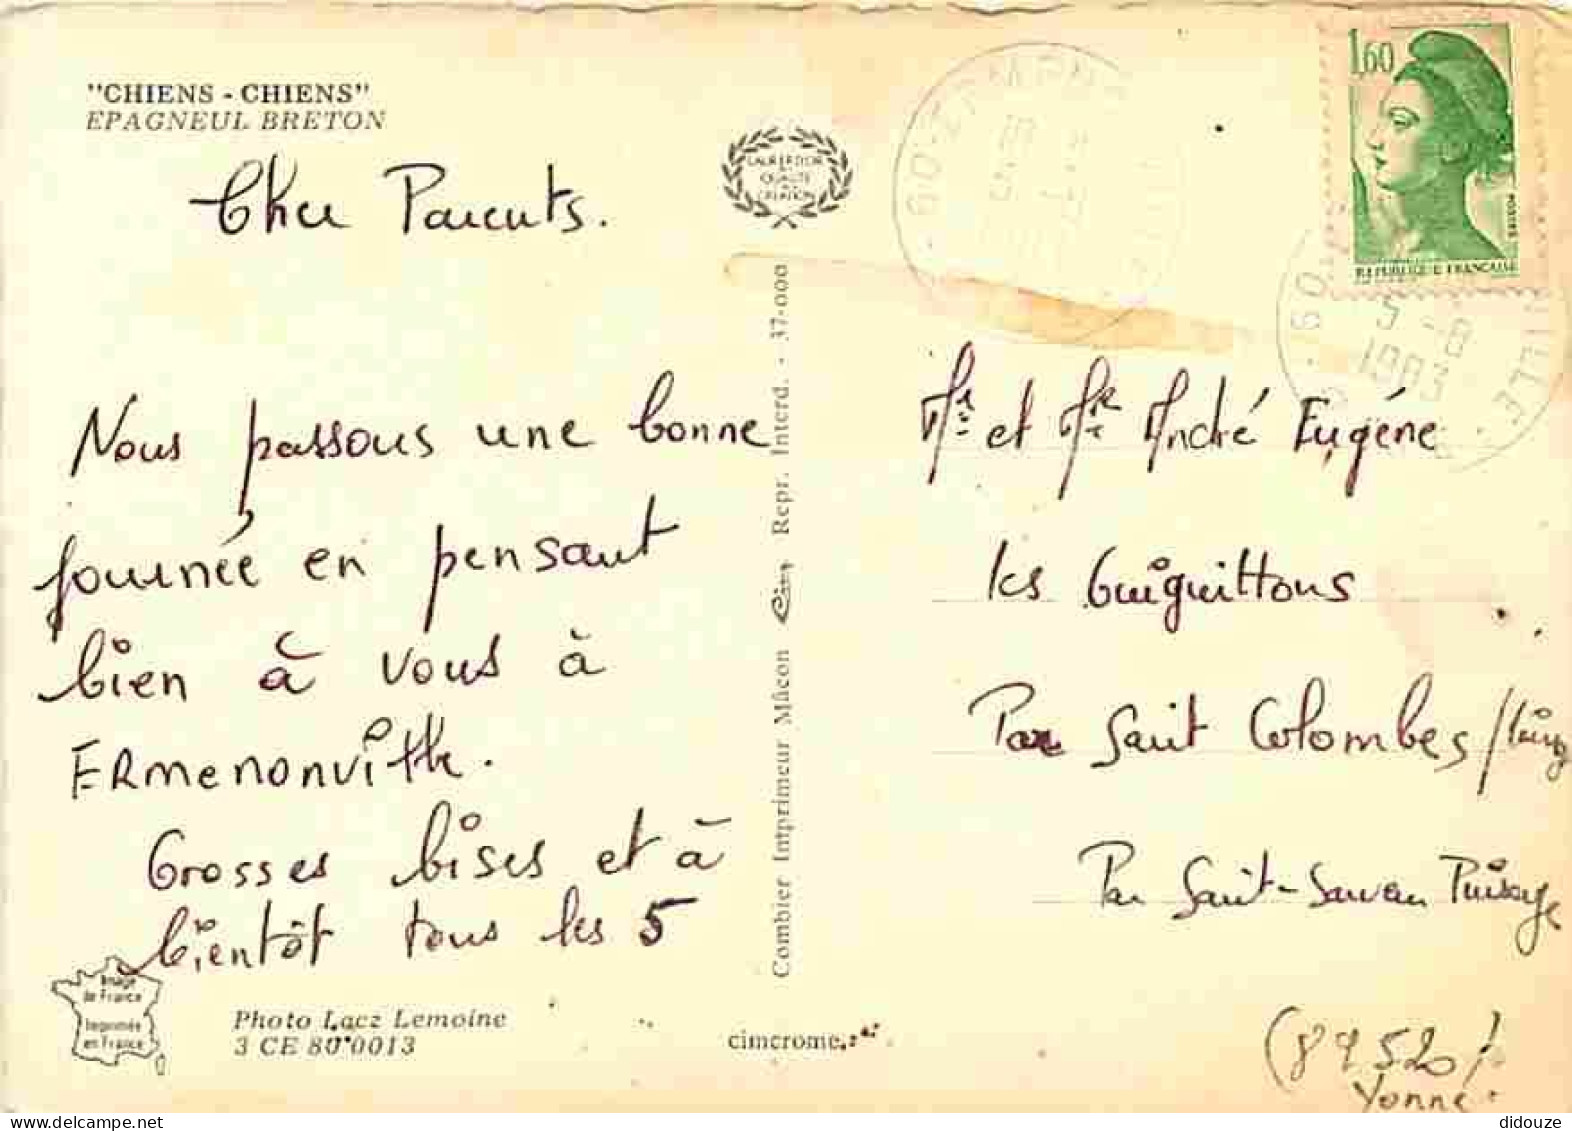 "CHIENS - CHIENS"
EPAGNEUL BRETON
Cher Parents.
Nous passons une bonne
journée en pensant
bien à vous à
ERmenonville.
Grosses bises et à
bientôt tous les 5
Image
de France
Imprimée
en France
Photo Lacz Lemoine
3 CE 80 0013
LAURIER D'OR
QUALITE
CREATION
Combier Imprimeur Mâcon Cim Repr. Interd. - 37-000
cimcrome
1,60
POSTES
REPUBLIQUE FRANÇAISE
60
5 - 8
1983
Mr et Me André Eugéne
les Guiguittons
Par Saint Colombes /
Par Saint-Sauveur Puisaye
(89520)
Yonne.
didouze